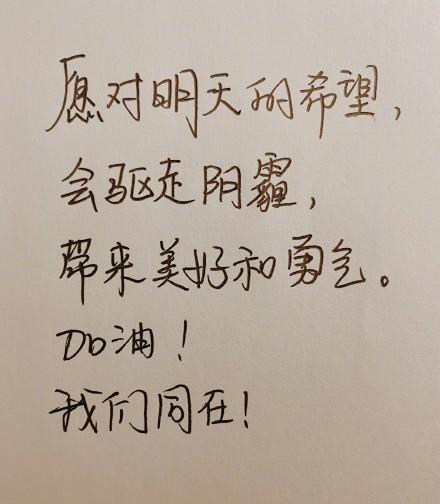 愿对明天的希望，
会驱走阴霾，
带来美好和勇气。
加油！
我们同在！